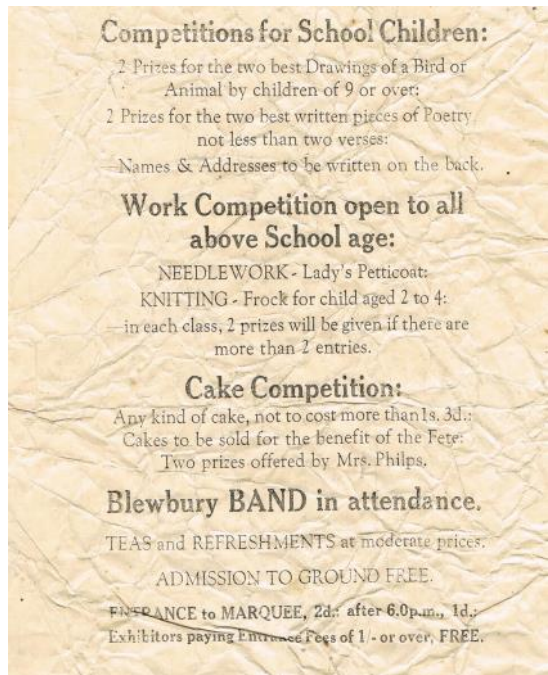 Competitions for School Children:
2 Prizes for the two best Drawings of a Bird or
Animal by children of 9 or over:
2 Prizes for the two best written pieces of Poetry
not less than two verses:
—Names & Addresses to be written on the back.
Work Competition open to all
above School age:
NEEDLEWORK - Lady's Petticoat:
KNITTING - Frock for child aged 2 to 4:
—in each class, 2 prizes will be given if there are
more than 2 entries.
Cake Competition:
Any kind of cake, not to cost more than 1s. 3d.:
Cakes to be sold for the benefit of the Fete:
Two prizes offered by Mrs. Philps.
Blewbury BAND in attendance.
TEAS and REFRESHMENTS at moderate prices.
ADMISSION TO GROUND FREE.
ENTRANCE to MARQUEE, 2d.: after 6.0p.m., 1d.:
Exhibitors paying Entrance Fees of 1/- or over, FREE.